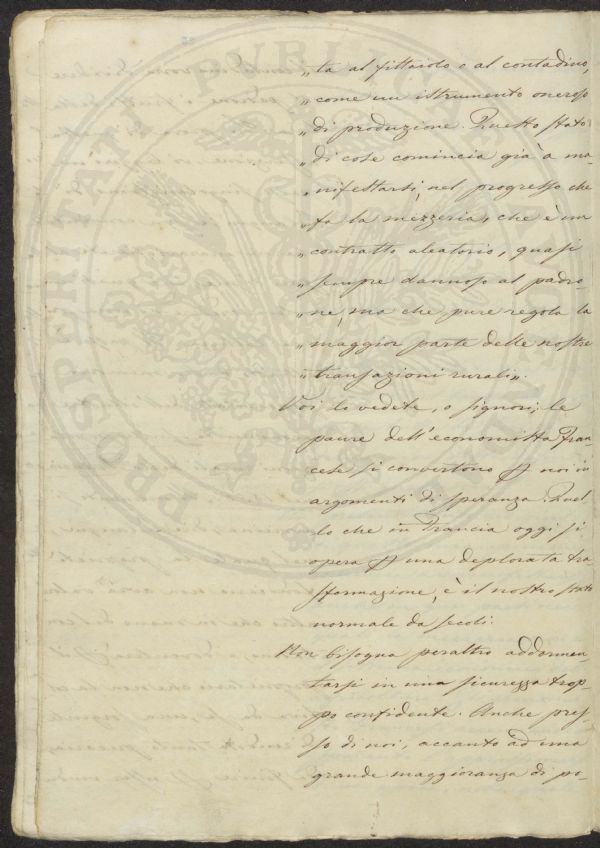 „ta al fittaiolo o al contadino,
„come un istrumento oneroso
„di produzione. Questo stato
„di cose comincia già a ma-
„nifestarsi, nel progresso che
„fa la mezzeria, che è un
„contratto aleatorio, quasi
„sempre dannoso al padro-
„ne, ma che pure regola la
„maggior parte delle nostre
„transazioni rurali„.
Voi lo vedete, o signori, le
paure dell'economista fran-
cese si convertono p noi in
argomenti di speranza. Quel-
lo che in Francia oggi si
opera p una deplorata tra-
sformazione, è il nostro stato
normale da secoli.
Non bisogna peraltro addormen-
tarsi in una sicurezza trop-
po confidente. Anche pres-
so di noi, accanto ad una
grande maggioranza di po-
PROSPERITATI PVBLICAE